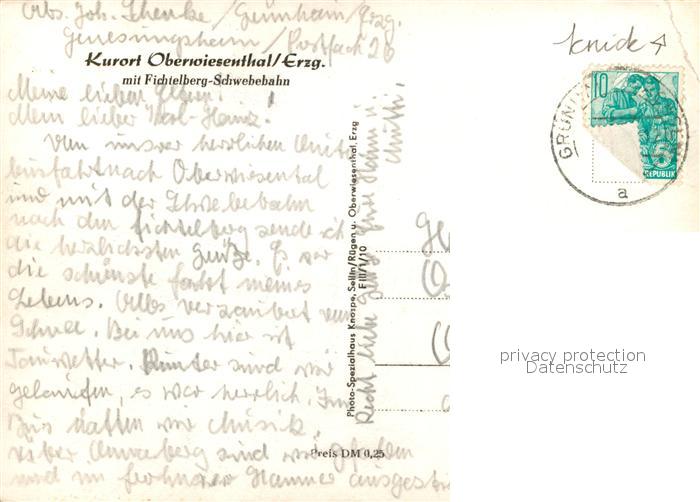 Abs. Joh. Schenke / Grünhain / Erzg.
Genesungsheim / Postfach 26
Kurort Oberwiesenthal/Erzg.
mit Fichtelberg-Schwebebahn
Meine lieben Eltern!
Mein lieber Karl-Heinz!
Von unsrer herrlichen
fahrt nach Oberwiesental
und mit der Schwebebahn
nach dem Fichtelberg sende ich
die herzlichsten Grüße. Es war
die schönste Fahrt meines
Lebens. Alles verzaubert von
Schnee. Bei uns hier ist
Tauwetter. Runter sind wir
gelaufen, es war herrlich. Im
Bus hatten wir Musik.
über Annaberg sind wir gefahren
und im Frohnauer Hammer
Photo-Spezialhaus Knospe, Sellin/Rügen u. Oberwiesenthal, Erzg
F III/1/10
Recht liebe Grüße Eure Hanni u.
Mutti.
Preis DM 0,25
knick
10
GRÜN
REPUBLIK
a
privacy protection
Datenschutz